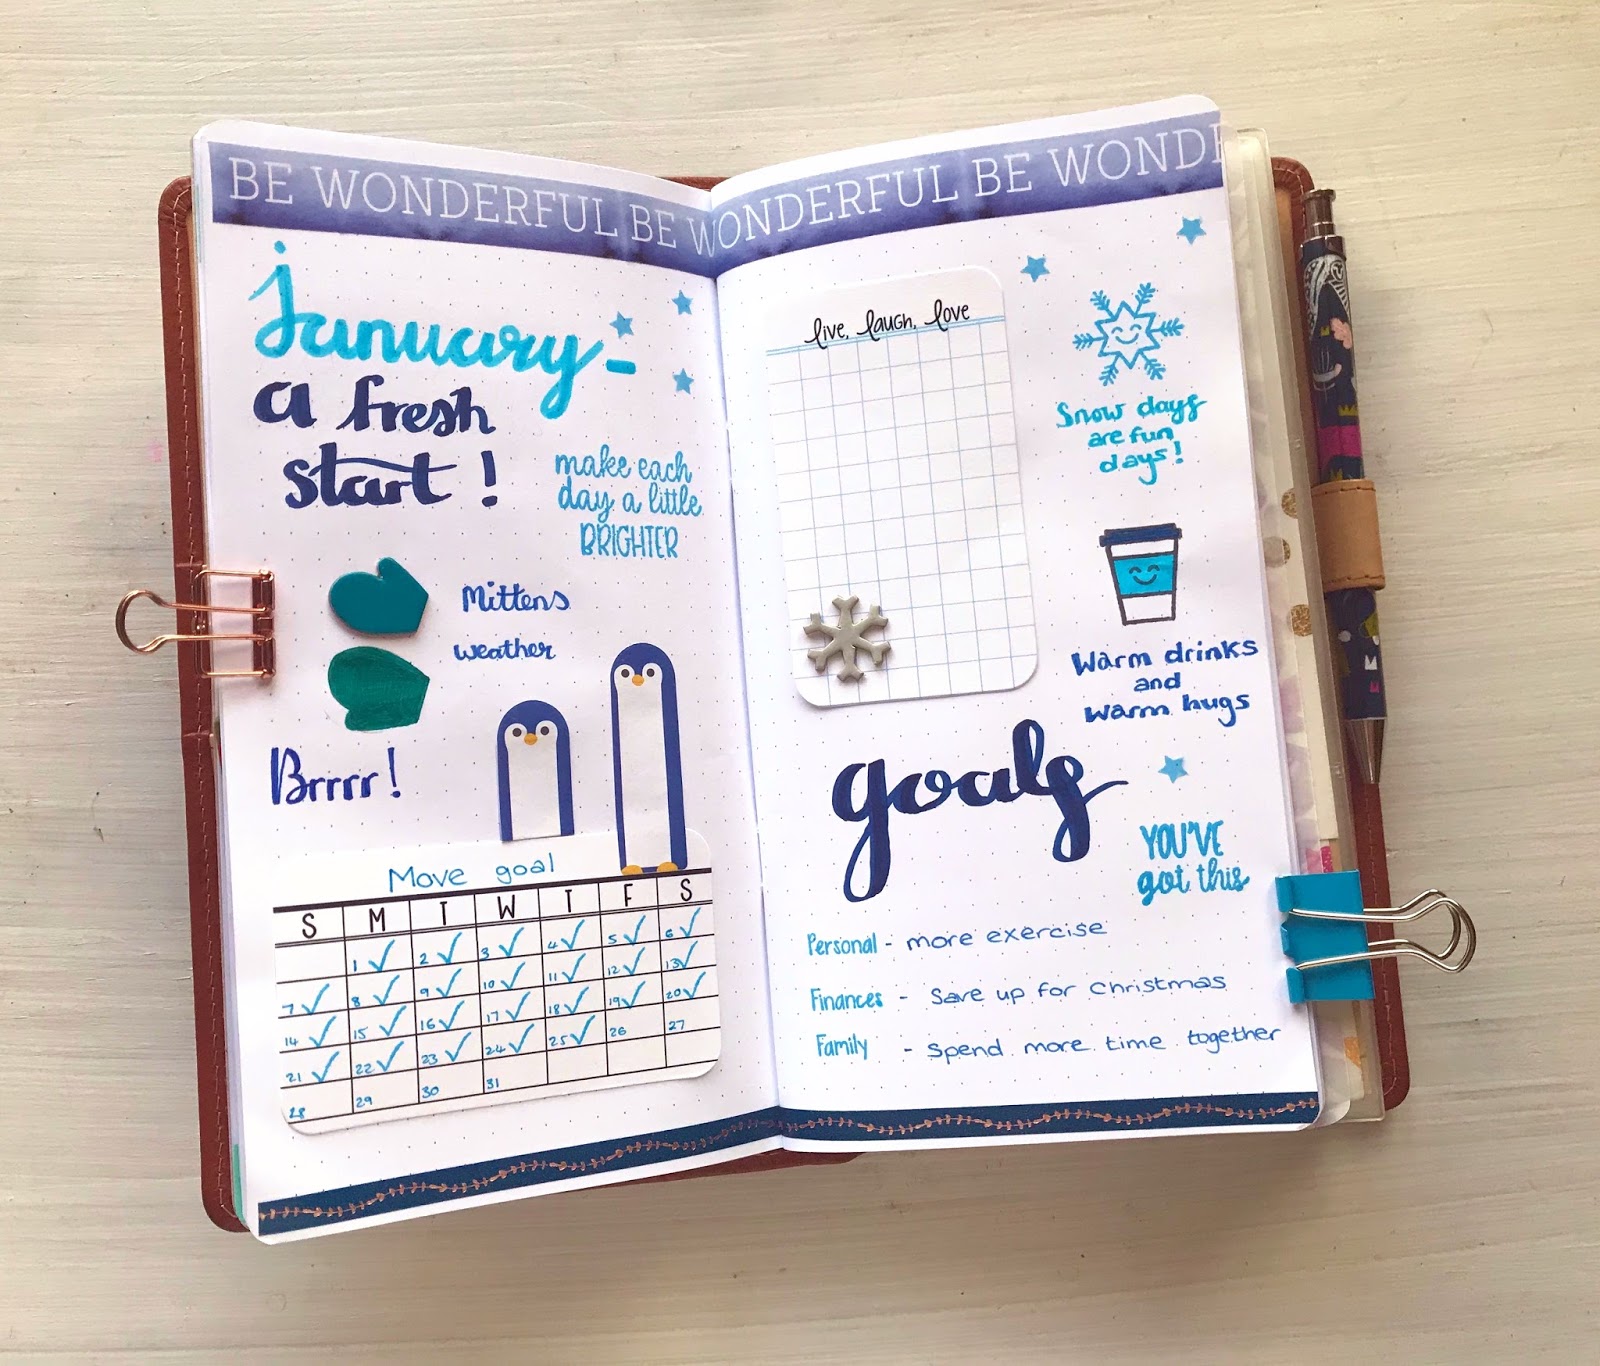 BE WONDERFUL BE WONDERFUL BE WONDE
January -
a fresh
start!
make each
day a little
BRIGHTER
Mittens
weather
Brrrr!
Move goal
S M T W T F S
1 ✓ 2 ✓ 3 ✓ 4 ✓ 5 ✓ 6 ✓
7 ✓ 8 ✓ 9 ✓ 10 ✓ 11 ✓ 12 ✓ 13 ✓
14 ✓ 15 ✓ 16 ✓ 17 ✓ 18 ✓ 19 ✓ 20 ✓
21 ✓ 22 ✓ 23 ✓ 24 ✓ 25 ✓ 26 27
28 29 30 31
live, laugh, love
Snow days
are fun
days!
Warm drinks
and
warm hugs
goals
YOU'VE
got this
Personal - more exercise
Finances - Save up for Christmas
Family - Spend more time together